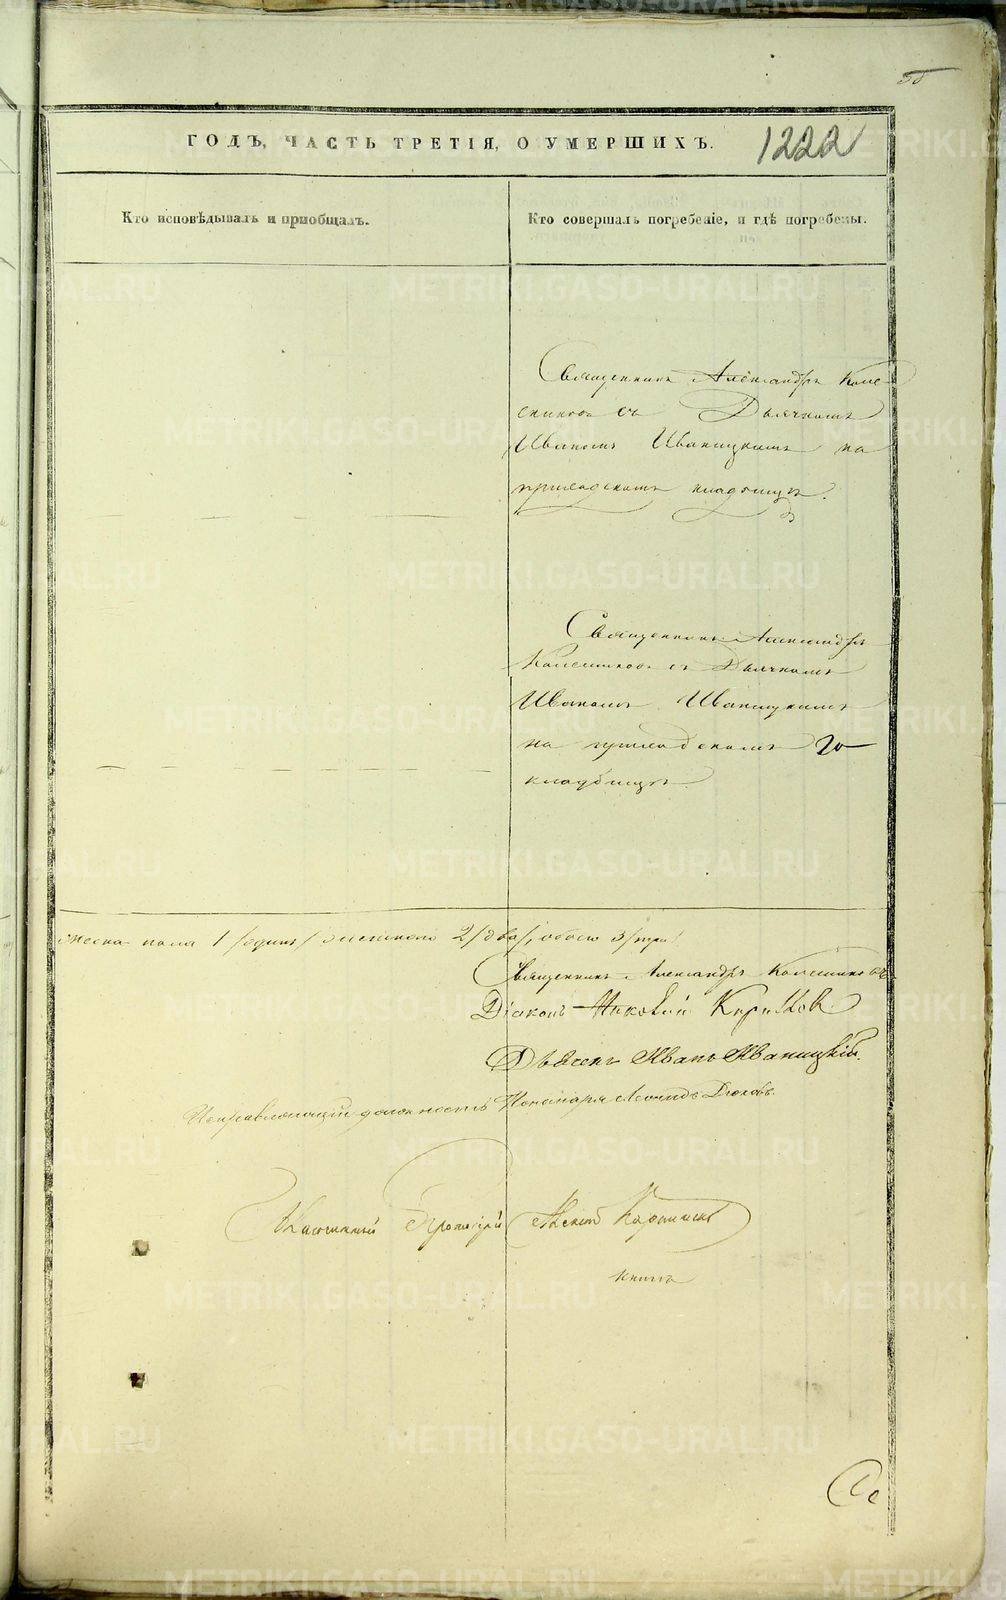 ГОДЪ, ЧАСТЬ ТРЕТІЯ, О УМЕРШИХЪ.
1222
Кто исповѣдывалъ и пріобщалъ.
Кто совершалъ погребеніе, и гдѣ погребены.
Священникъ Александръ Коле
сниковъ съ Дьячкомъ
Иваномъ Иваницкимъ на
приходскомъ кладбищѣ.
Священникъ Александръ
Колесниковъ съ Дьячкомъ
Иваномъ Иваницкимъ
на приходскомъ
кладбищѣ.
пола 1 /одинъ/ женскаго 2 /два/, обоего 3 /три/
Священникъ Александръ Колесниковъ
Діаконъ Кирилловъ
Дьячекъ Иванъ Иваницкій.
Исправляющій должность Пономаря
METRIKI.GASO-URAL.RU